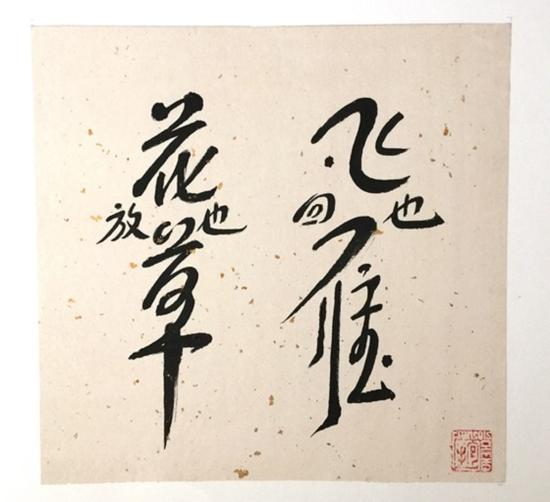 飞也回雁
花也放草